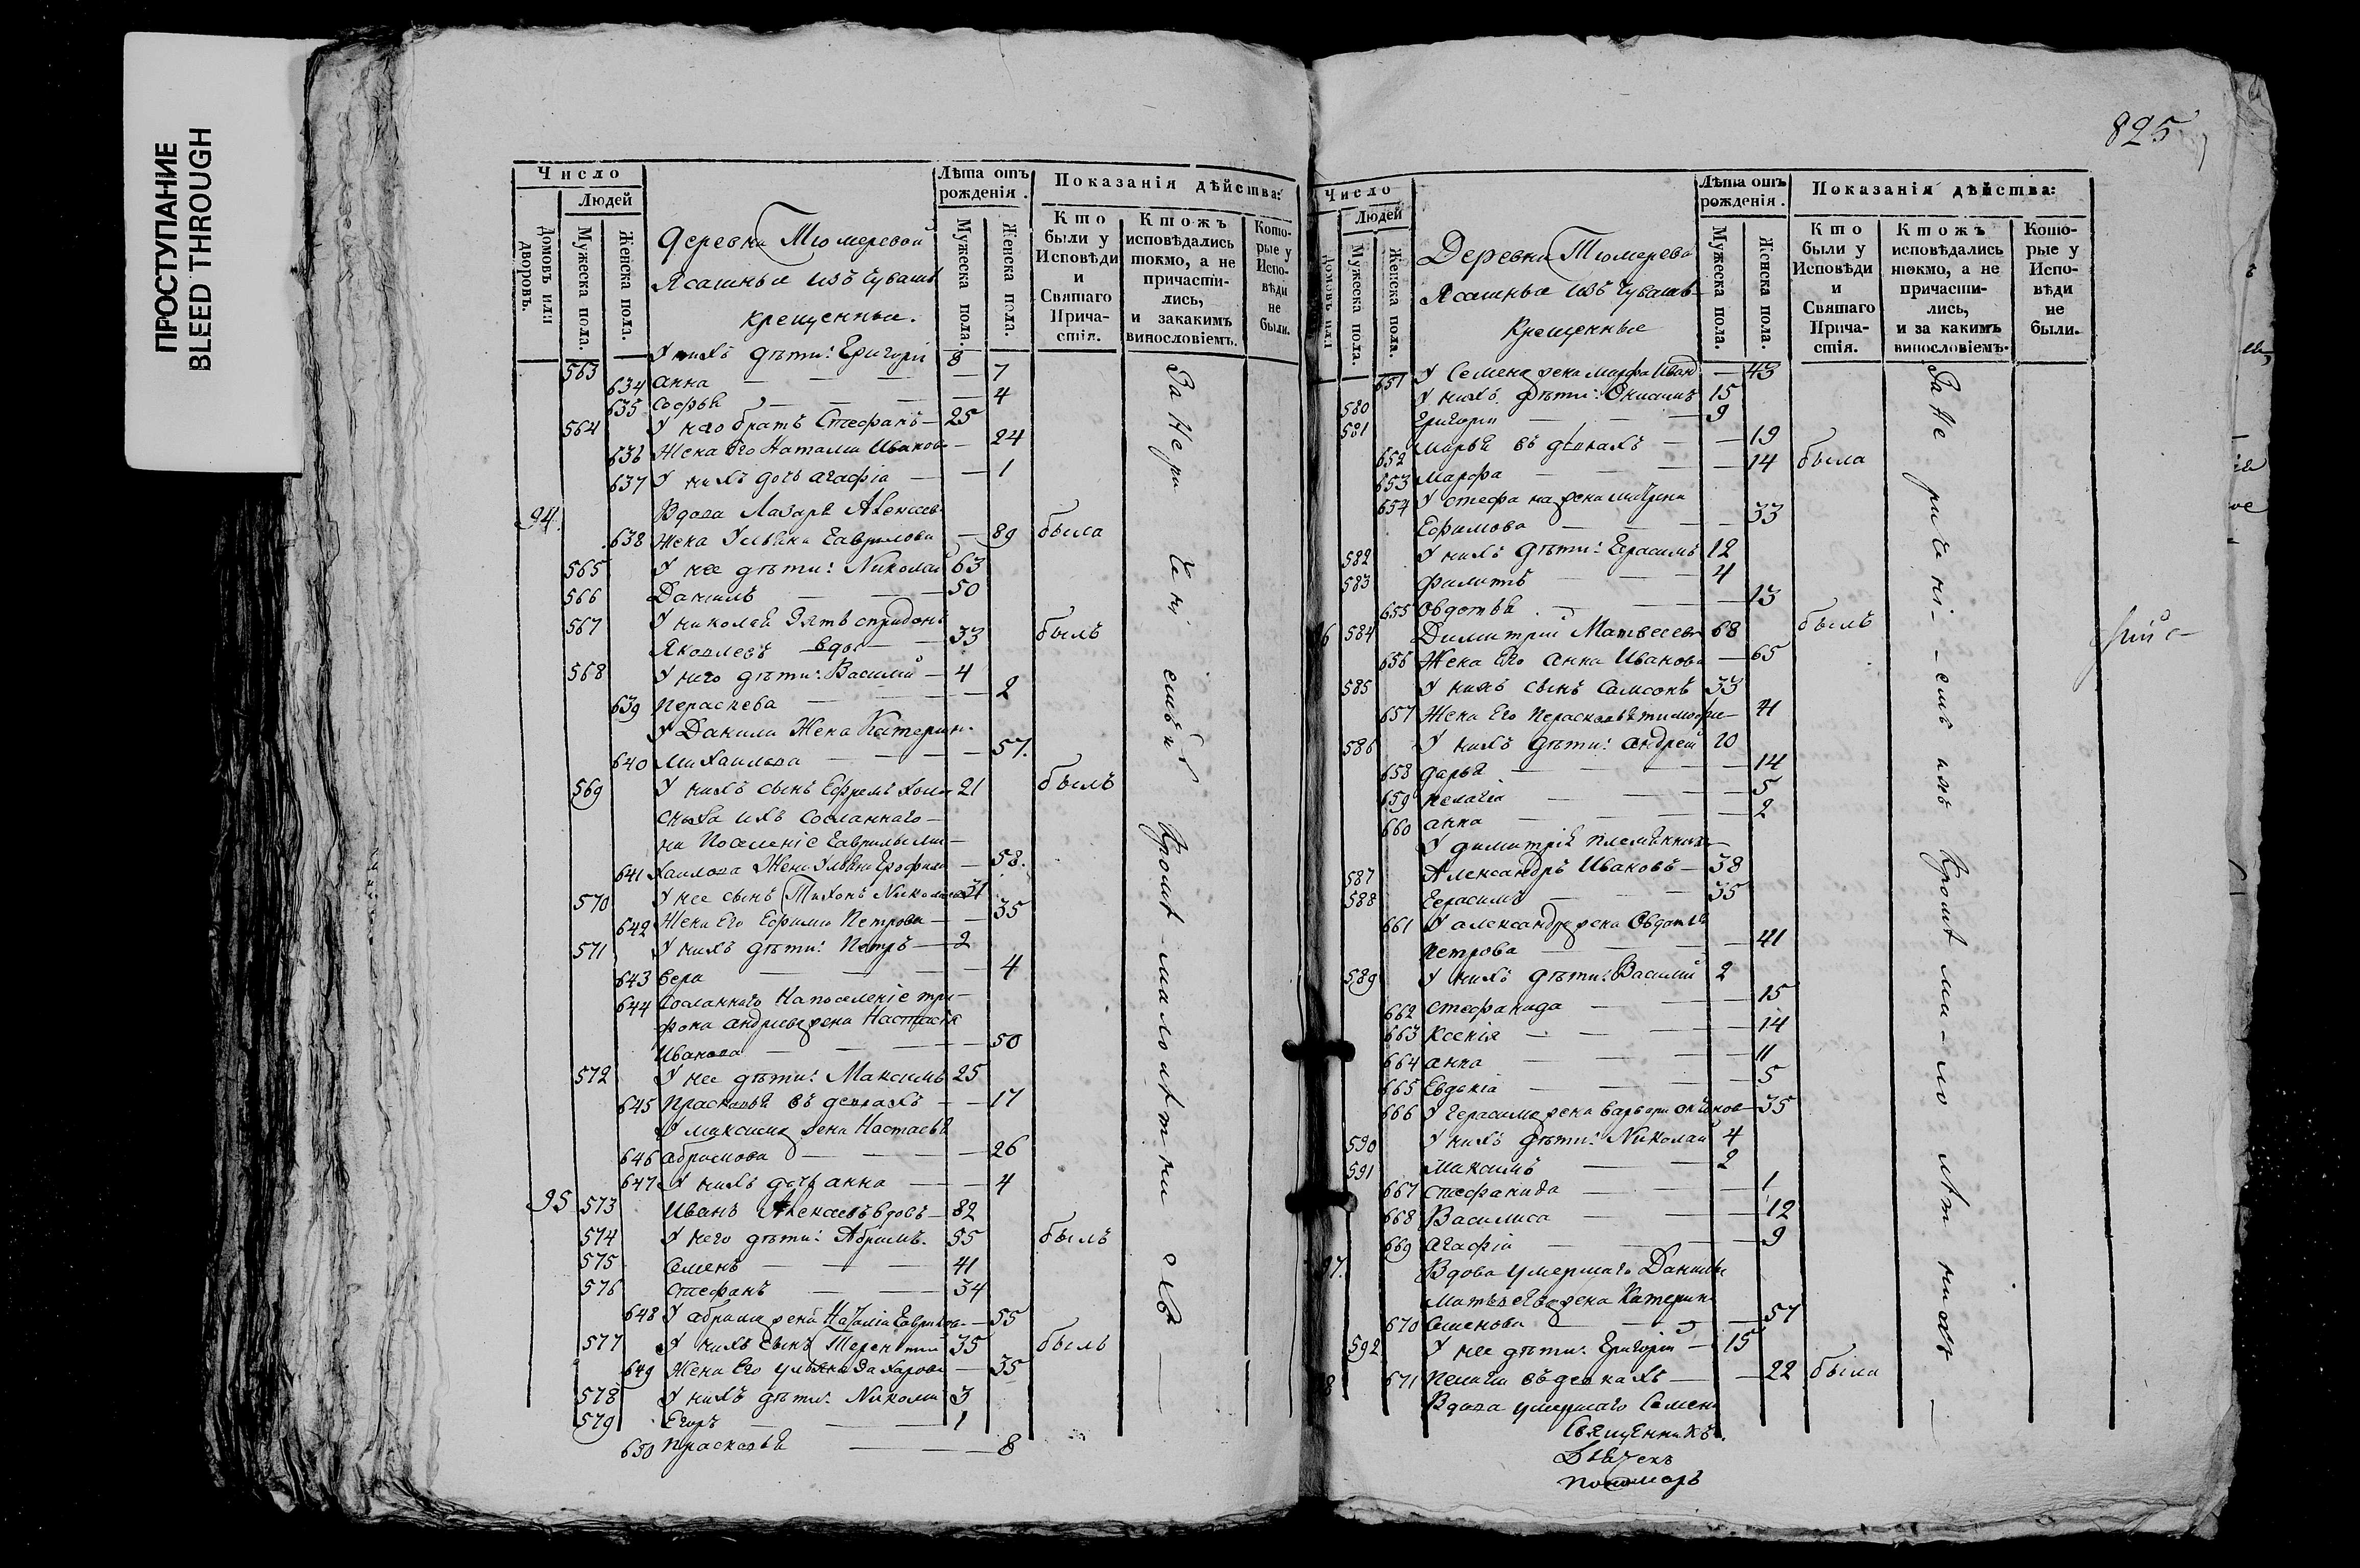 ПРОСТУПАНИЕ
BLEED THROUGH
Число
Людей
Домовъ или дворовъ.
Мужеска пола.
Женска пола.
Деревни Тюмеревой
Ясашные изъ Чувашъ
крещенные.
Лѣта отъ рожденія.
Мужеска пола.
Женска пола.
Показанія дѣйства:
Кто были у Исповѣди и Святаго Причастія.
Ктожъ исповѣдались токмо, а не причастились, и закакимъ винословіемъ.
Которые у Исповѣди не были.
563 У нихъ дѣти: Григорій 8
634 Анна — 7
635 Софья — 4
564 У него братъ Стефанъ — 25
636 Жена Его Наталья Иванова — 24
637 У нихъ дочь Агафія — 1
94. Вдова Лазаря Алексеев
638 Жена Ульяна Гаврилова — 89 была
565 У нее дѣти: Николай 63
566 Данилъ — 50
567 У Николая Зять Спридонъ
Яковлевъ вдов — 33 былъ
568 У него дѣти: Василій — 4
639 Пераскева — 2
У Данилы Жена Катерин
640 Михаилова — 57.
569 У нихъ сынъ Ефремъ холос 21 былъ
сноха ихъ Сосланнаго —
на Поселеніе Гаврилы Ми—
641 хаилова Жена Ульяна Ерофеева — 58.
570 У нее сынъ Тихонъ Николаевъ 31
642 Жена Его Ефимья Петрова — 35
571 У нихъ дѣти: Петръ — 2
643 Вера — 4
644 Сосланнаго на поселеніе Три—
фона Андреева жена Настасья
Иванова — 50
572 У нее дѣти: Максимъ 25
645 Прасковья въ девкахъ — 17
У Максима жена Настасья
646 Абрамова — 26
647 У нихъ дочь Анна — 4
95 573 Иванъ Алексеевъ вдовъ — 82
574 У него дѣти: Абрамъ. 55 былъ
575 Семенъ — 41
576 Стефанъ — 34
648 У Абрама жена Наталія Гаврилов — 55
577 У нихъ сынъ Терентій 35 былъ
649 Жена Его Ульяна Захарова — 35
578 У нихъ дѣти: Николай 3
579 Егоръ — 1
650 Прасковья — 8
За Нерачениемъ Кромѣ малолѣтнихъ
825
Число
Людей
Домовъ или
Мужеска пола.
Женска пола.
Деревни Тюмерева
Ясашные изъ Чувашъ
Крещенные
Лѣта отъ рожденія.
Мужеска пола.
Женска пола.
Показанія дѣйства:
Кто были у Исповѣди и Святаго Причастія.
Ктожъ исповѣдались токмо, а не причастились, и за какимъ винословіемъ.
Которые у Исповѣди не были.
651 У Семена жена Марфа Иван — 43
580 У нихъ дѣти: 15
581 Григорій — 9
652 Марья въ дѣвкахъ — 19
653 Марфа — 14 была
654 У Стефана жена Матрена
Ефимова — 33
582 У нихъ дѣти: Герасимъ 12
583 Филипъ — 4
655 Овдотья — 13
96 584 Димитрій Матвеевъ 68 былъ
656 Жена Его Анна Иванова — 65
585 У нихъ сынъ Самсонъ 33
657 Жена Его Пераскевья Тимофе — 41
586 У нихъ дѣти: Андрей 10
658 Дарья — 14
659 Пелагія — 5
660 Анна — 2
У Димитрія Племянники
587 Александръ Ивановъ — 38
588 Герасимъ — 35
661 У Александра жена Овдотья
Петрова — 41
589 У нихъ дѣти: Василій 2
662 Стефанида — 15
663 Ксенія — 14
664 Анна — 11
665 Евдокія — 5
666 У Герасима жена Варвара — 35
590 У нихъ дѣти: Николай 4
591 Максимъ — 2
667 Стефанида — 1
668 Василиса — 12
669 Агафія — 9
97. Вдова умершаго Данилы
Матвеева жена Катерина
670 Семенова — 57
592 У нее дѣти: Григорій — 15
671 Пелагія въ девкахъ — 22 была
Вдова умершаго Семен
За Нерачениемъ ихъ Кромѣ малолѣтнихъ
Священникъ.
Дьячекъ
Пономарь